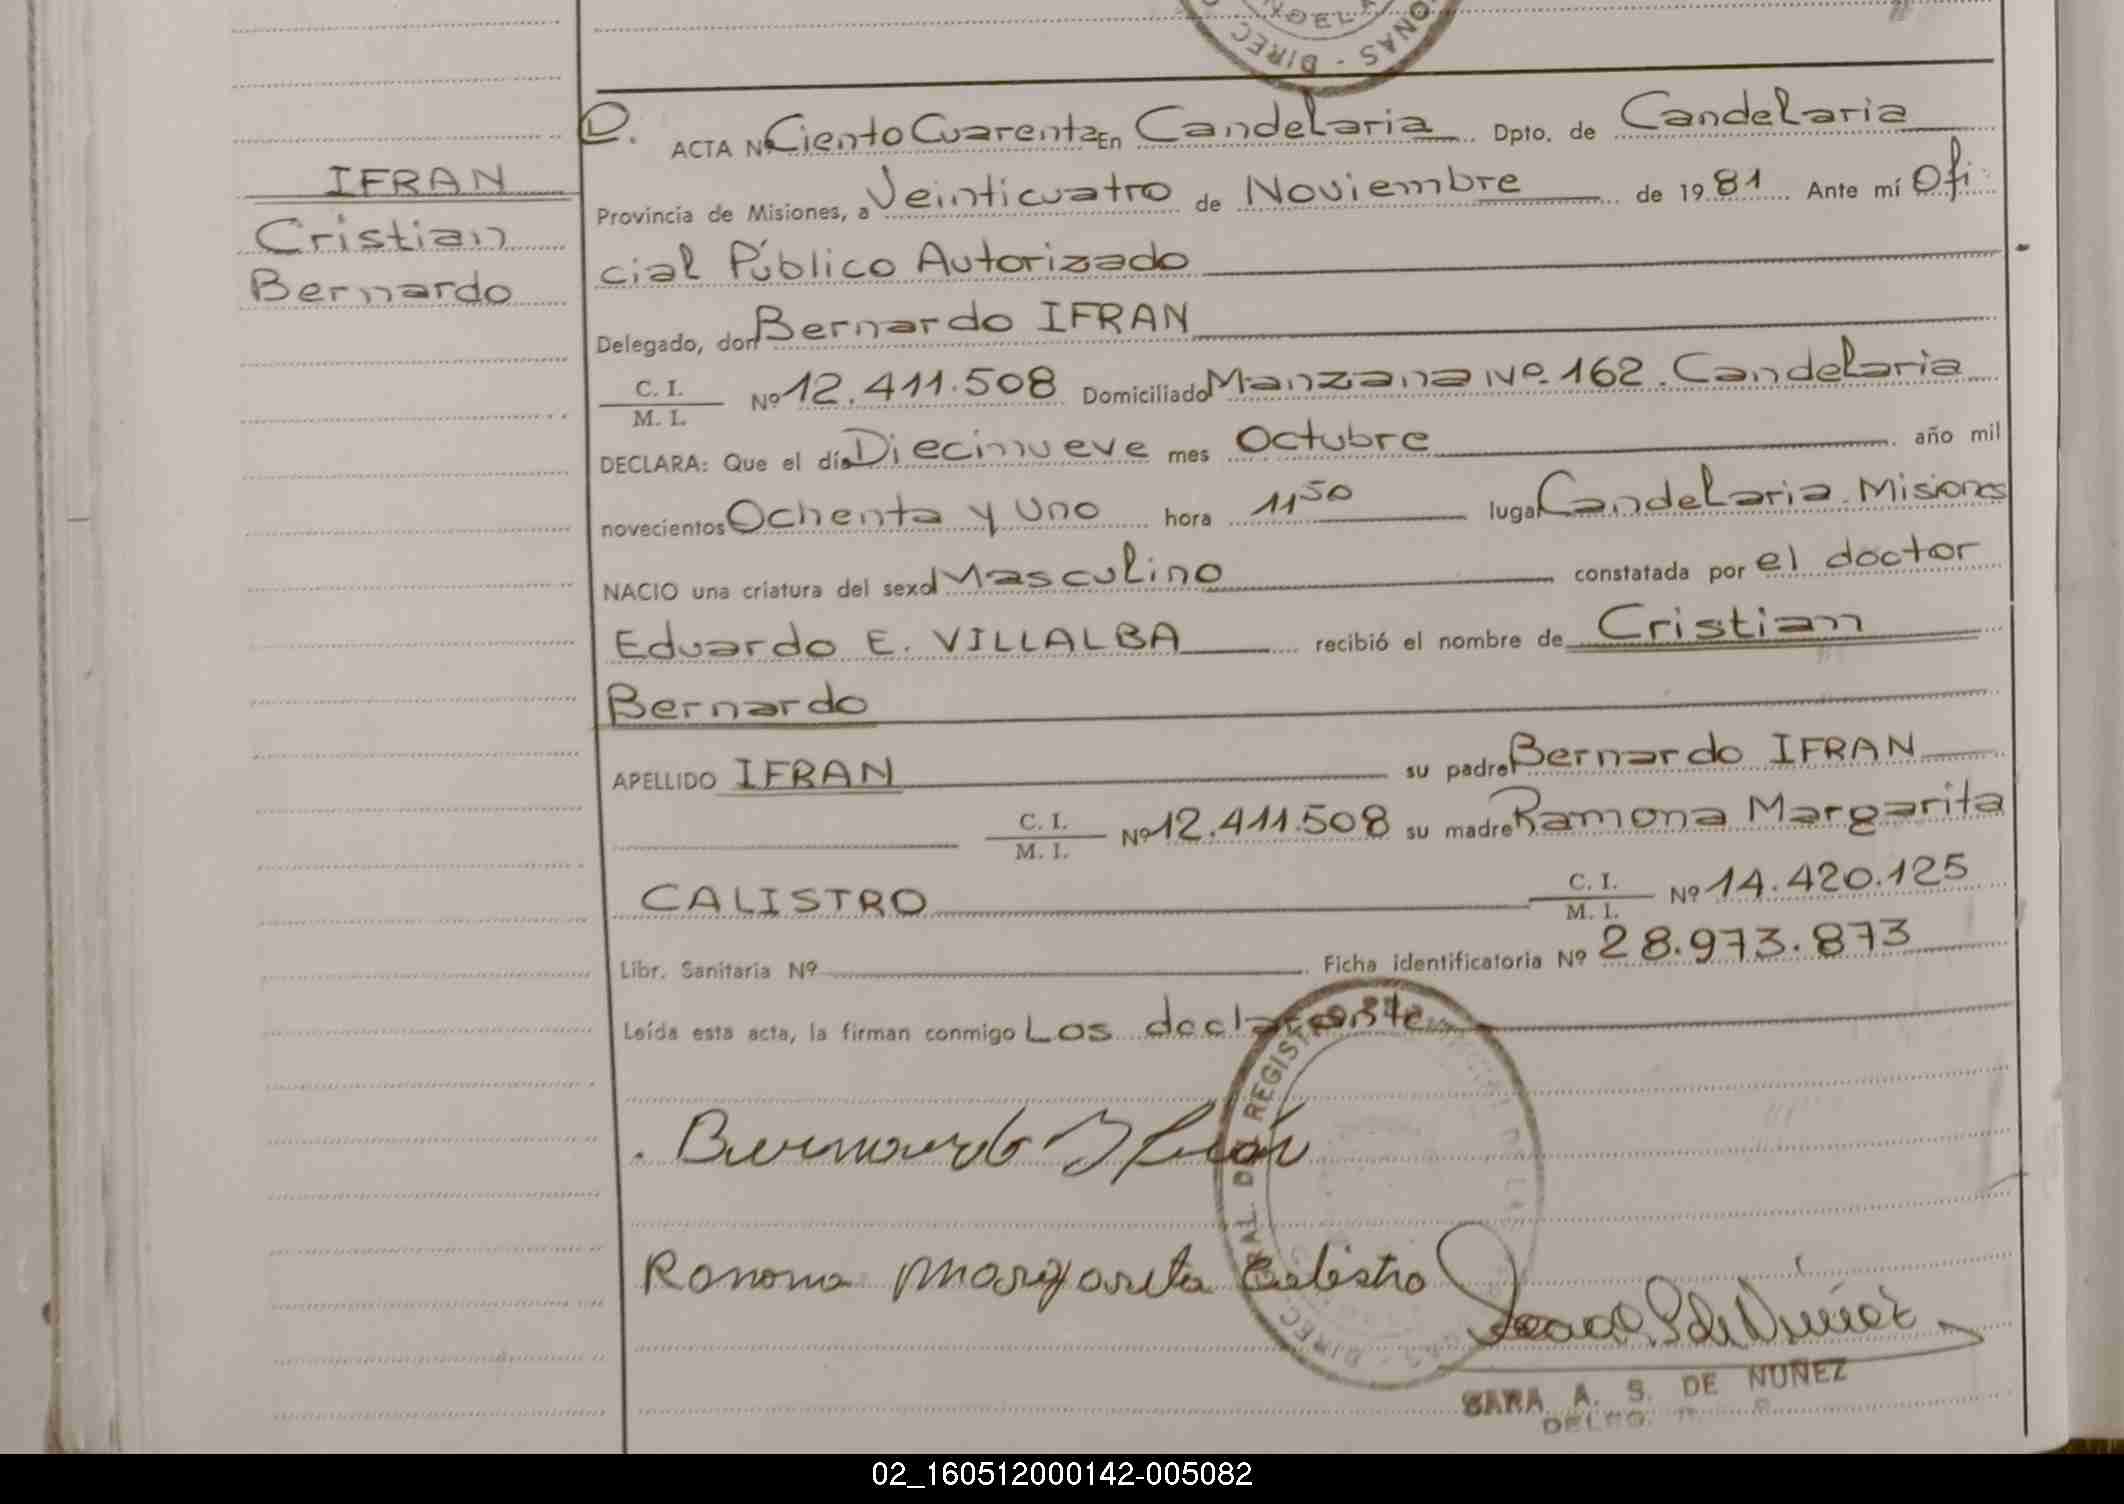 NAS - DIREC
IFRAN
Cristian
Bernardo
ACTA Nº Ciento Cuarenta En Candelaria Dpto. de Candelaria
Provincia de Misiones, a Veinticuatro de Noviembre de 1981 Ante mí Ofi
cial Público Autorizado
Delegado, don Bernardo IFRAN
C. I.
M. I. Nº 12.411.508 Domiciliado Manzana Nº 162. Candelaria
DECLARA: Que el día Diecinueve mes Octubre año mil
novecientos Ochenta y Uno hora 11 50 lugar Candelaria. Misiones
NACIO una criatura del sexo Masculino constatada por el doctor
Eduardo E. VILLALBA recibió el nombre de Cristian
Bernardo
APELLIDO IFRAN su padre Bernardo IFRAN
C. I.
M. I. Nº 12.411.508 su madre Ramona Margarita
CALISTRO C. I.
M. I. Nº 14.420.125
Libr. Sanitaria Nº Ficha identificatoria Nº 28.973.873
Leída esta acta, la firman conmigo Los declarante
Bernardo Ifran
Ramona Margarita Calistro
SARA A. S. DE NUÑEZ
02_160512000142-005082